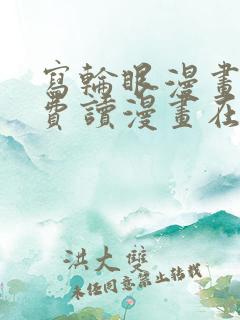 寫輪眼漫畫
費讀漫畫在
洪大雙
未任同意禁止转载